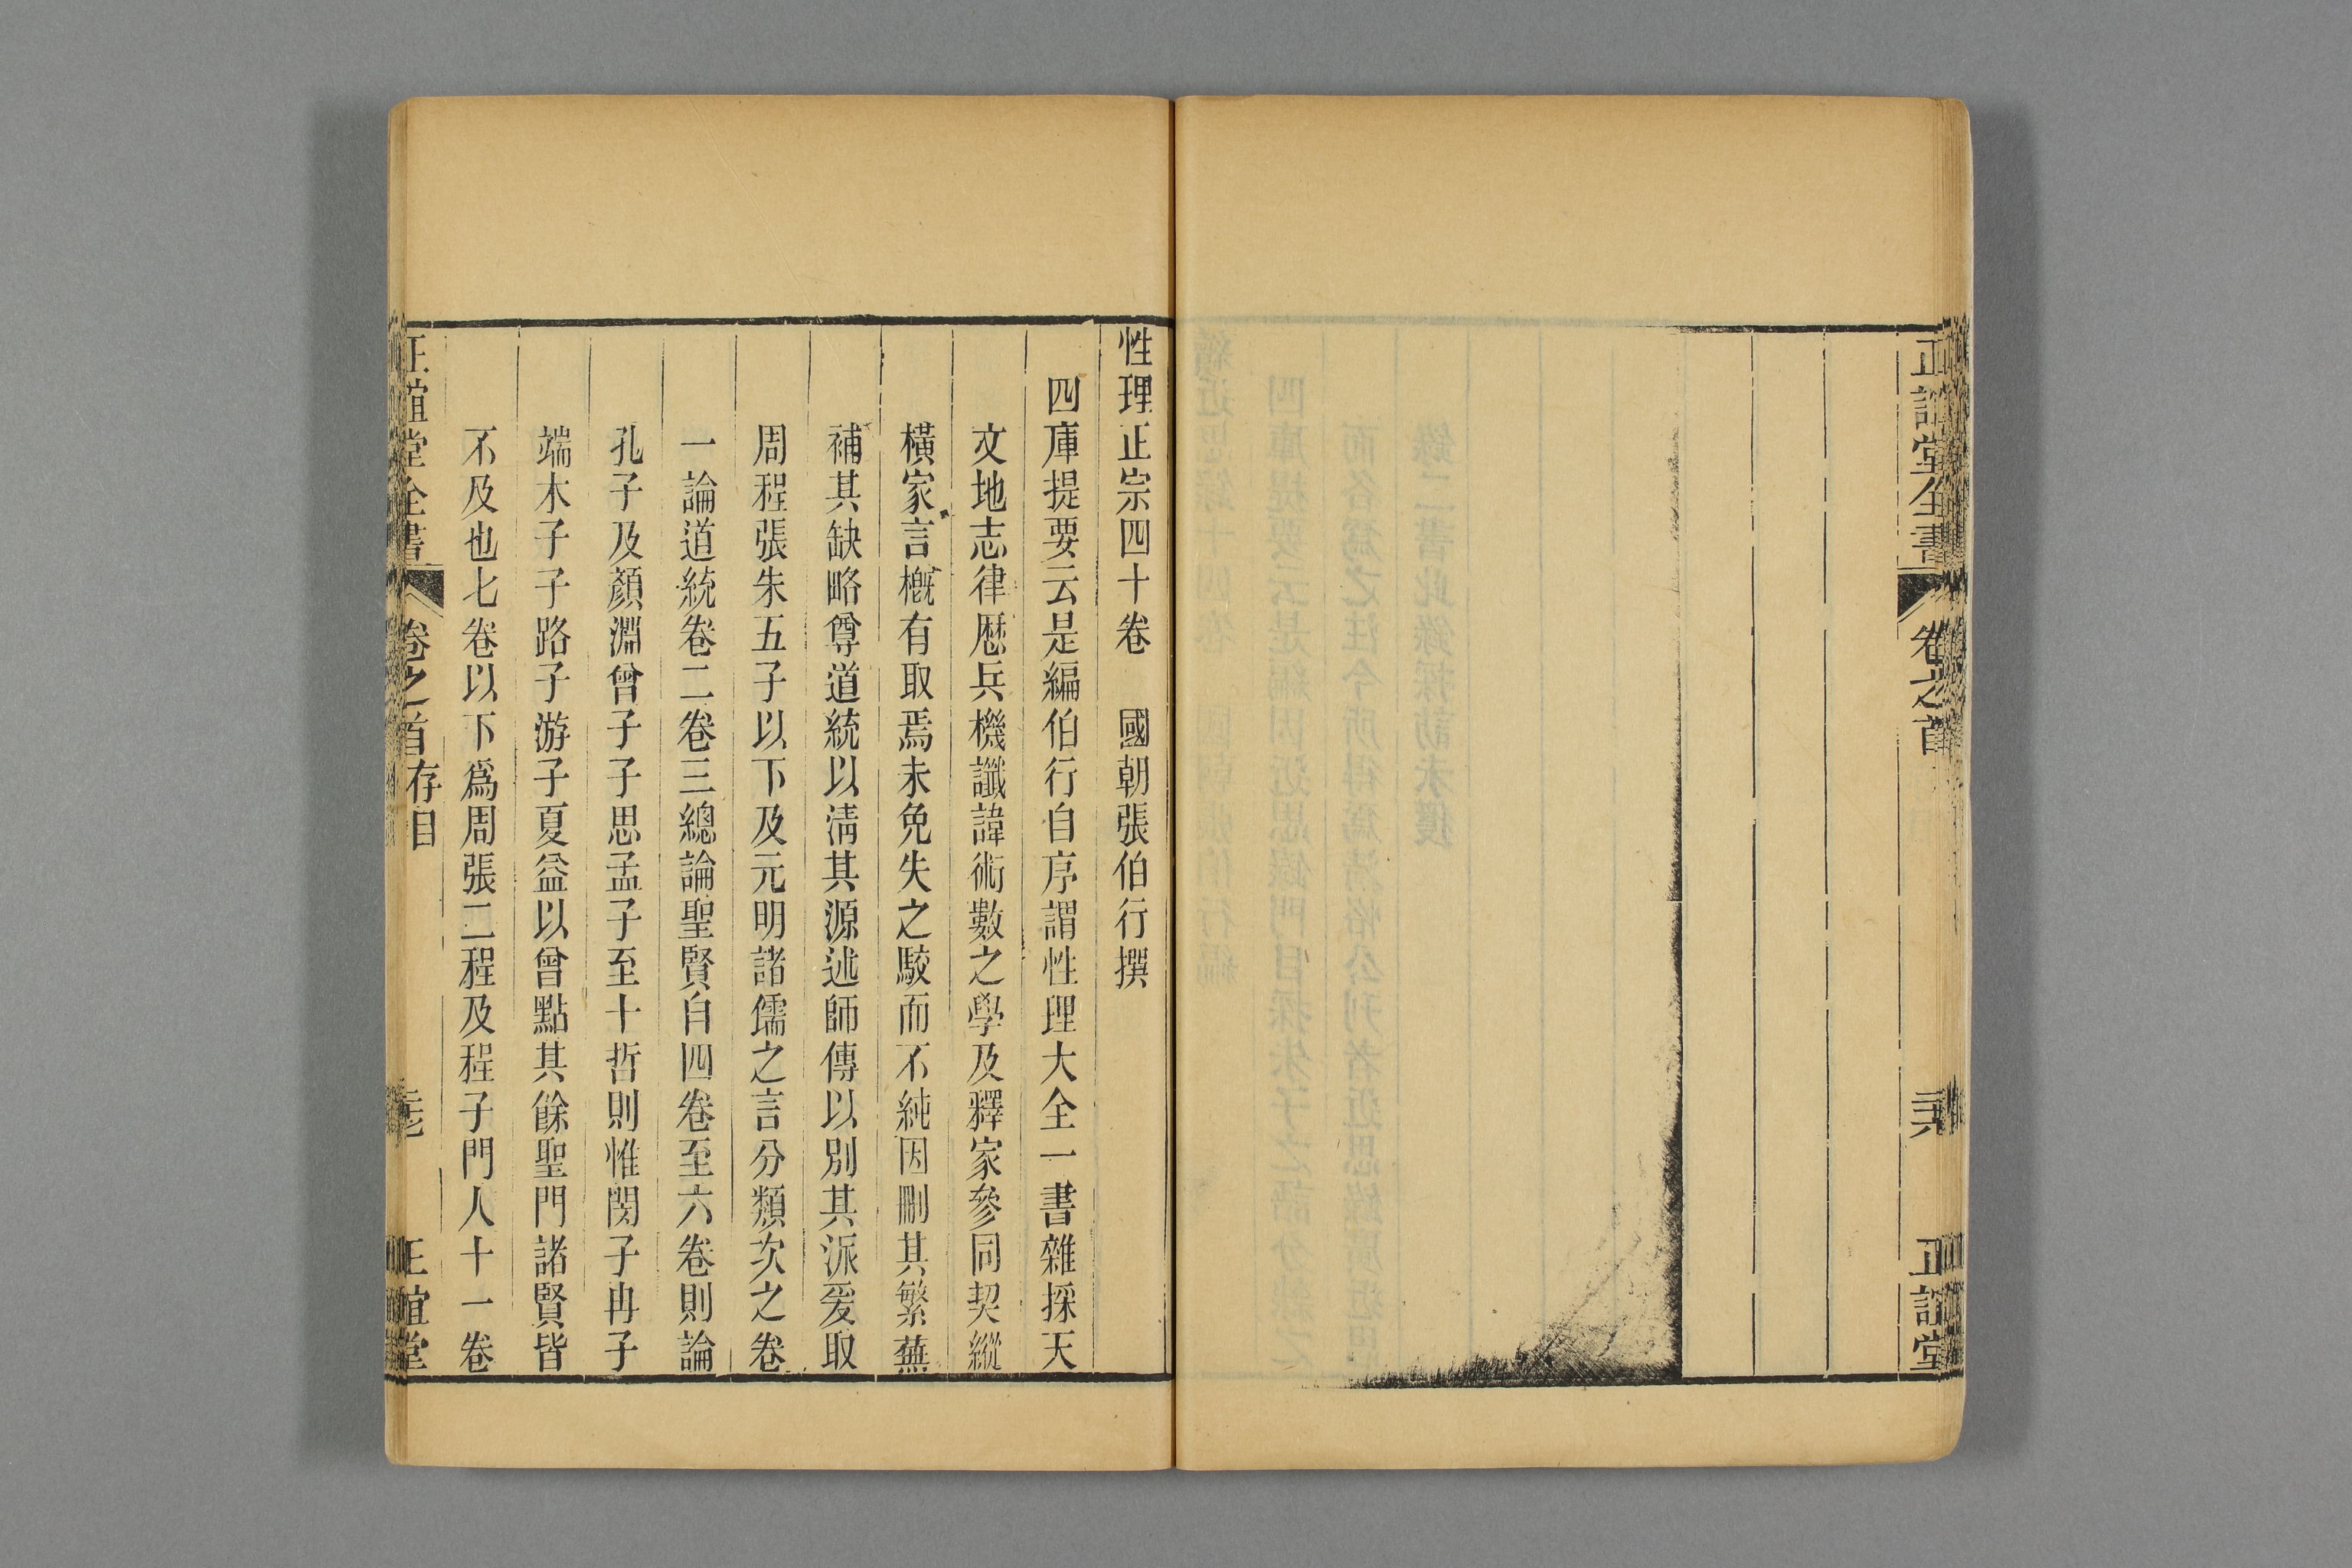 正誼堂全書
卷之首
正誼堂
性理正宗四十卷　國朝張伯行撰
四庫提要云是編伯行自序謂性理大全一書雜採天
文地志律厯兵機讖諱術數之學及釋家參同契縱
橫家言槪有取焉未免失之駁而不純因刪其繁蕪
補其缺略尊道統以清其源述師傳以別其派爰取
周程張朱五子以下及元明諸儒之言分類次之卷
一論道統卷二卷三總論聖賢自四卷至六卷則論
孔子及顏淵曾子子思孟子至十哲則惟閔子冉子
端木子子路子游子夏益以曾點其餘聖門諸賢皆
不及也七卷以下爲周張二程及程子門人十一卷
正誼堂全書
卷之首 存目
正誼堂